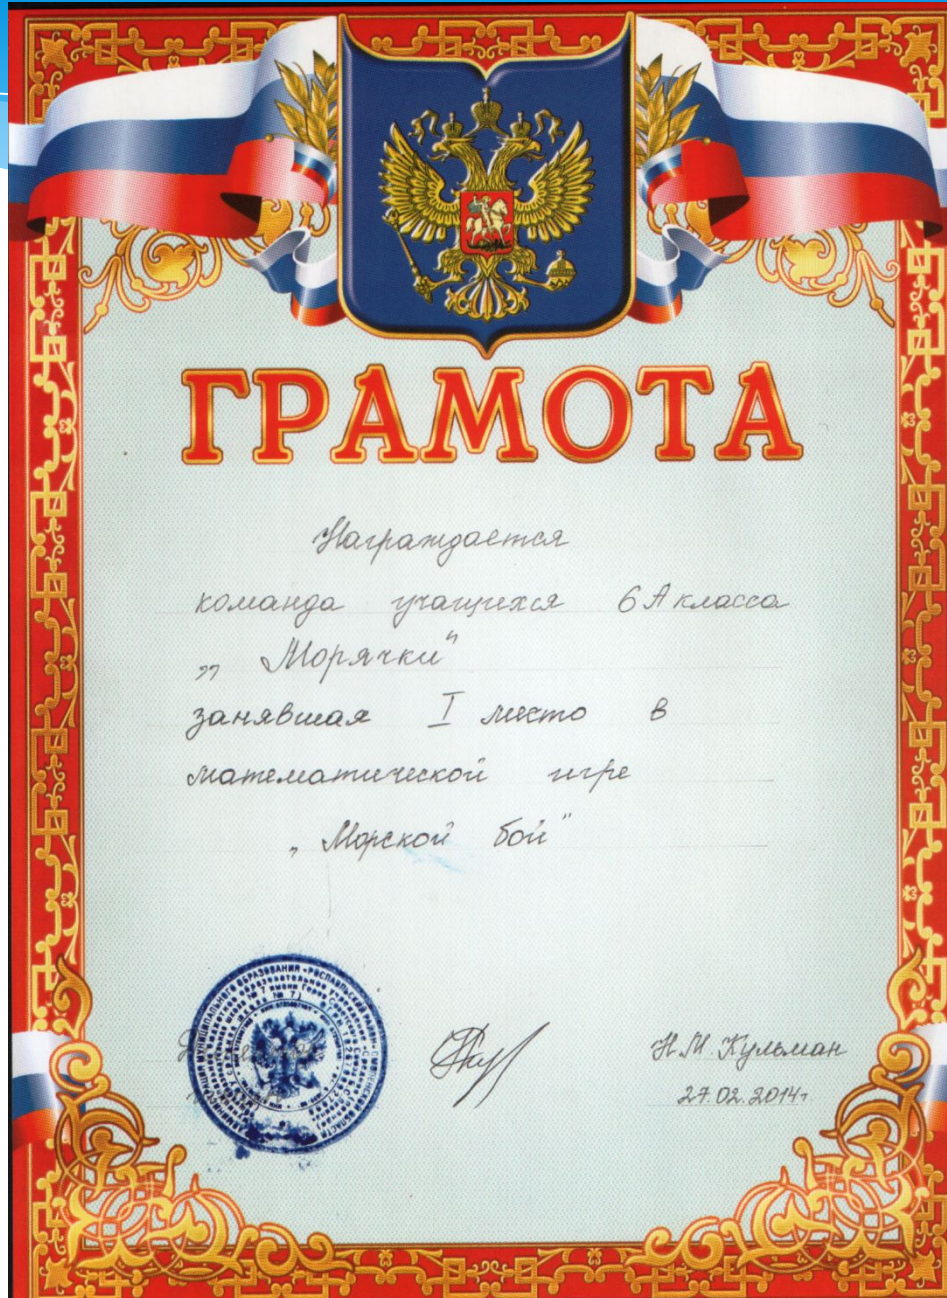 ГРАМОТА
Награждается
команда учащихся 6 А класса
„ Морячки"
занявшая I место в
математической игре
„ Морской бой"
Н.М. Кульман
27.02.2014г